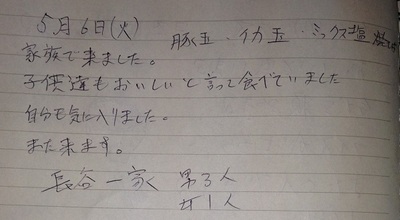 5月6日(火)
豚玉・イカ玉・ミックス塩
家族で来ました。
子供達もおいしいと言って食べていました
自分も気に入りました。
また来ます。
長谷一家 男3人
女1人